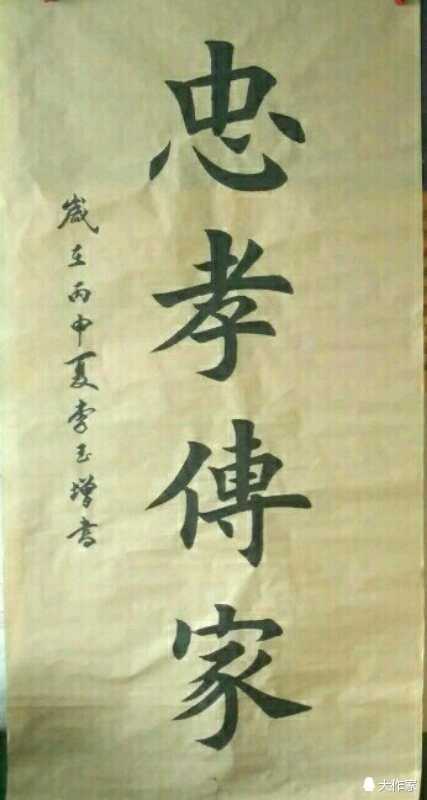 忠孝傳家
歲在丙申夏李玉增書
大作家